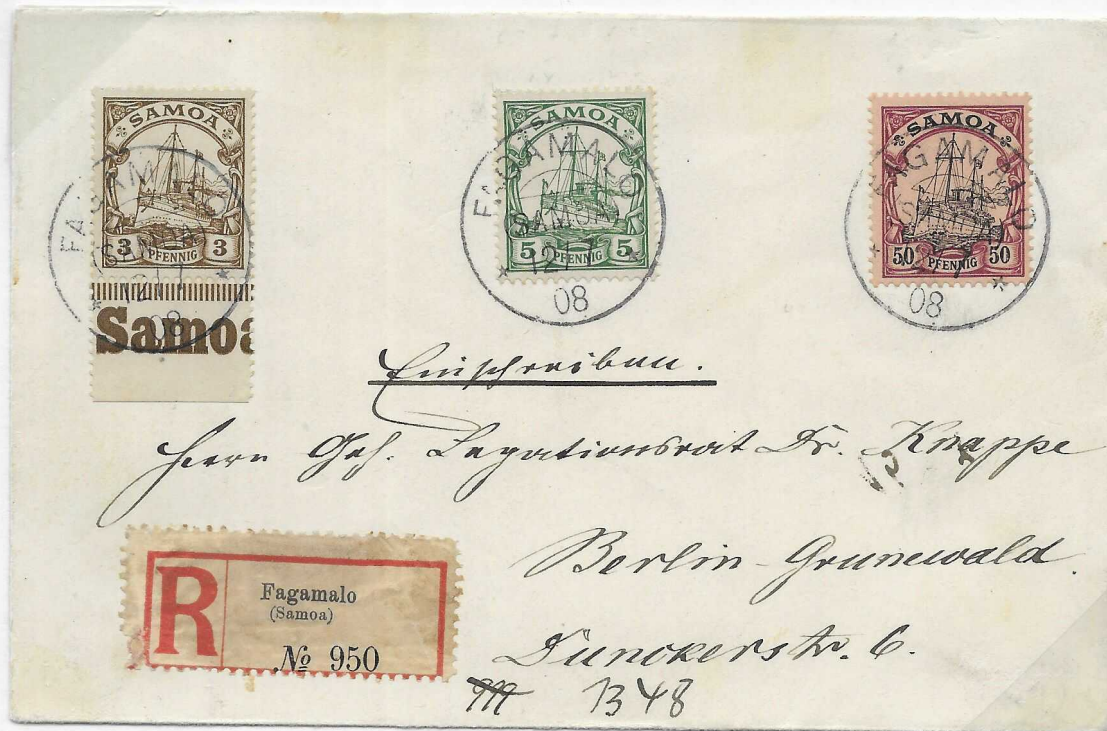 SAMOA
3 PFENNIG 3
FAGAMALO
(SAMOA)
* 12/7 *
08
Samoa
SAMOA
5 PFENNIG 5
FAGAMALO
(SAMOA)
* 12/7 *
08
SAMOA
50 PFENNIG 50
FAGAMALO
(SAMOA)
* 12/7 *
08
Einschreiben.
Herrn Geh. Legationsrat Dr. Knappe
Berlin-Grunewald.
Dunckerstr. 6.
R
Fagamalo
(Samoa)
№ 950
1348